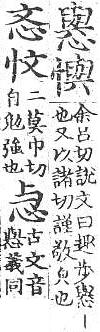 㦛懙
余吕切說文曰趣步㦛㇑
也又以諸切謹敬皃也
忞忟
二莫巾切
自勉強也
古文音
㦛義同